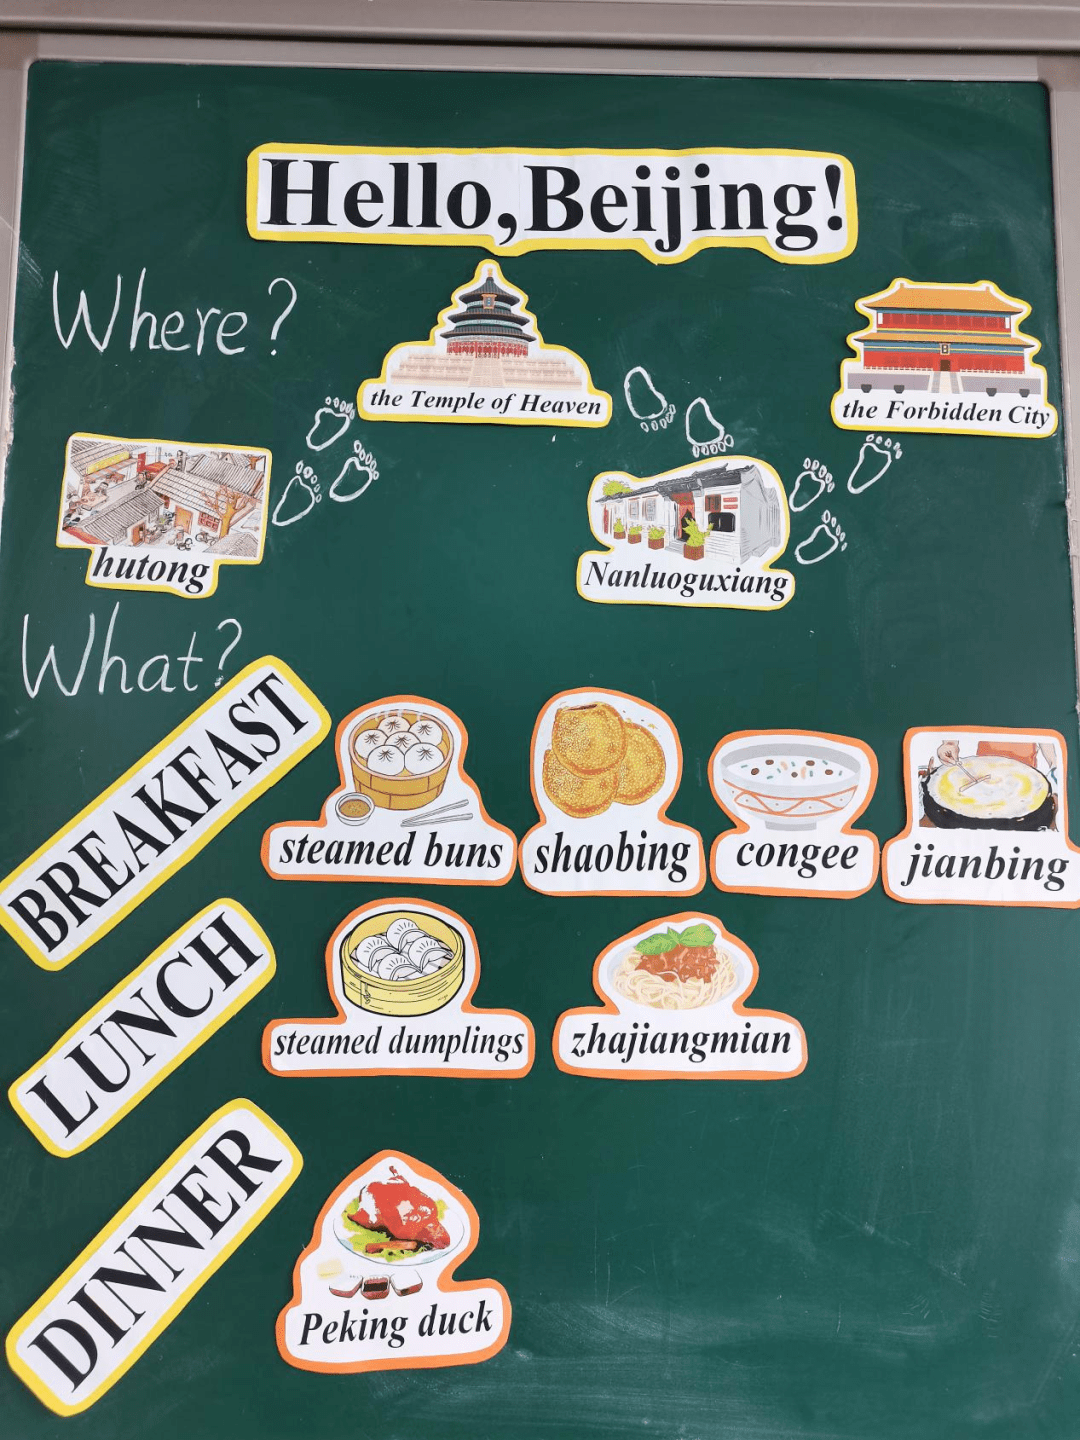 Hello,Beijing!
Where?
the Temple of Heaven
the Forbidden City
hutong
Nanluoguxiang
What?
BREAKFAST
steamed buns
shaobing
congee
jianbing
LUNCH
steamed dumplings
zhajiangmian
DINNER
Peking duck